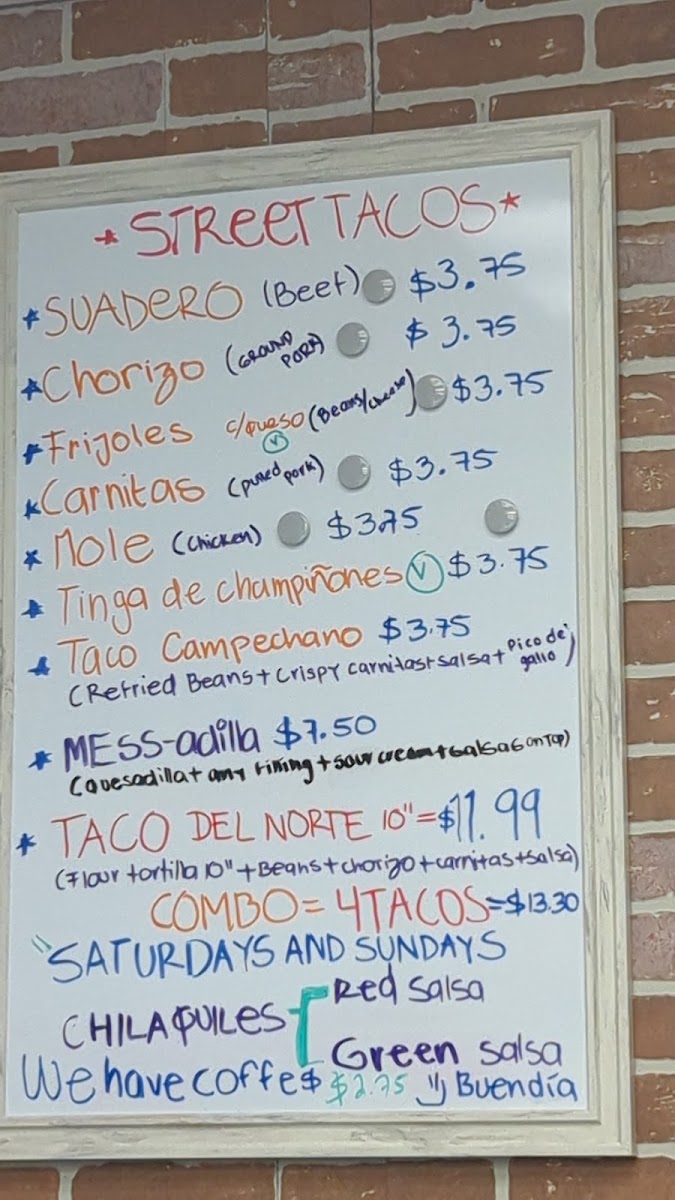 *STREET TACOS*
*SUADERO (Beef) $3.75
*Chorizo (GROUND PORK) $3.75
*Frijoles c/queso (Beans/cheese) $3.75
V
*Carnitas (pulled pork) $3.75
*Mole (chicken) $3.75
*Tinga de champiñones V $3.75
*Taco Campechano $3.75
(Refried Beans+crispy carnitas+salsa+Pico de gallo)
*MESS-adilla $7.50
(quesadilla+any filling+sour cream+salsas on top)
*TACO DEL NORTE 10"=$11.99
(Flour tortilla 10"+Beans+chorizo+carnitas+salsa)
COMBO=4TACOS=$13.30
"SATURDAYS AND SUNDAYS
CHILAQUILES { Red Salsa
Green salsa
We have coffe $ $2.75 Buendía